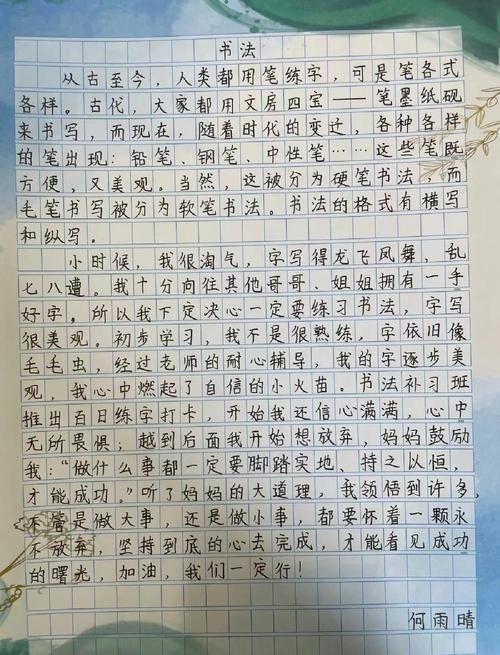 书法
从古至今，人类都用笔练字，可是笔各式
各样。古代，大家都用文房四宝——笔墨纸砚
来书写，而现在，随着时代的变迁，各种各样
的笔出现：铅笔、钢笔、中性笔……这些笔既
方便，又美观。当然，这被分为硬笔书法，而
毛笔书写被分为软笔书法。书法的格式有横写
和纵写。
小时候，我很淘气，字写得龙飞凤舞，乱
七八遭。我十分向往其他哥哥、姐姐拥有一手
好字。所以我下定决心一定要练习书法，字写
很美观。初步学习，我不是很熟练，字依旧像
毛毛虫，经过老师的耐心辅导，我的字逐步美
观，我心中燃起了自信的小火苗。书法补习班
推出百日练字打卡，开始我还信心满满，心中
无所畏惧；越到后面我开始想放弃，妈妈鼓励
我：“做什么事都一定要脚踏实地、持之以恒，
才能成功。”听了妈妈的大道理，我领悟到许多，
不管是做大事，还是做小事，都要怀着一颗永
不放弃，坚持到底的心去完成，才能看见成功
的曙光，加油，我们一定行！
何雨晴